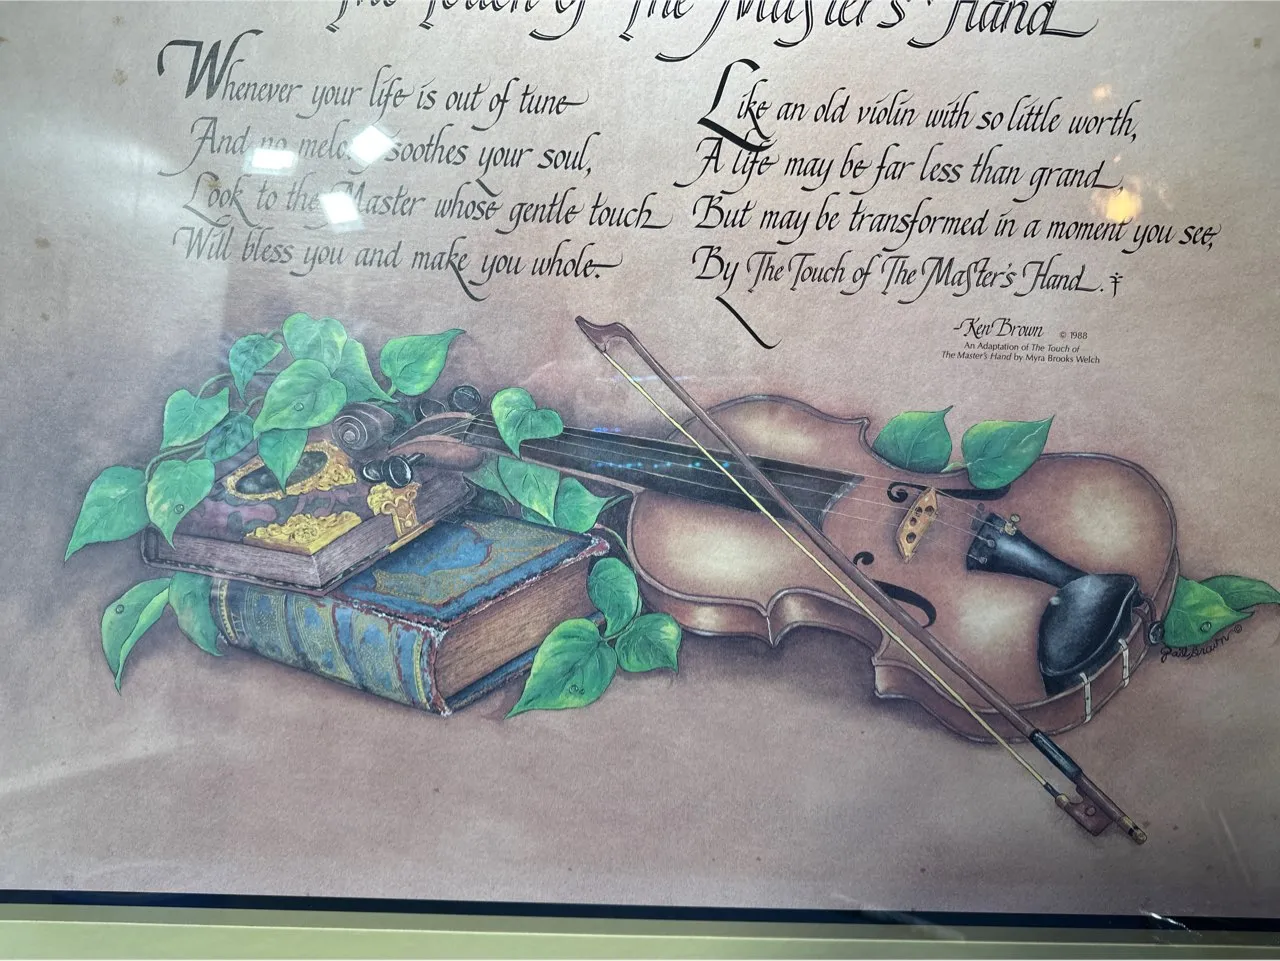 The Touch of The Master's Hand
Whenever your life is out of tune
And no melody soothes your soul,
Look to the Master whose gentle touch
Will bless you and make you whole.
Like an old violin with so little worth,
A life may be far less than grand,
But may be transformed in a moment you see,
By The Touch of The Master's Hand.
-Ken Brown © 1988
An Adaptation of The Touch of
The Master's Hand by Myra Brooks Welch
Gail Brown ©